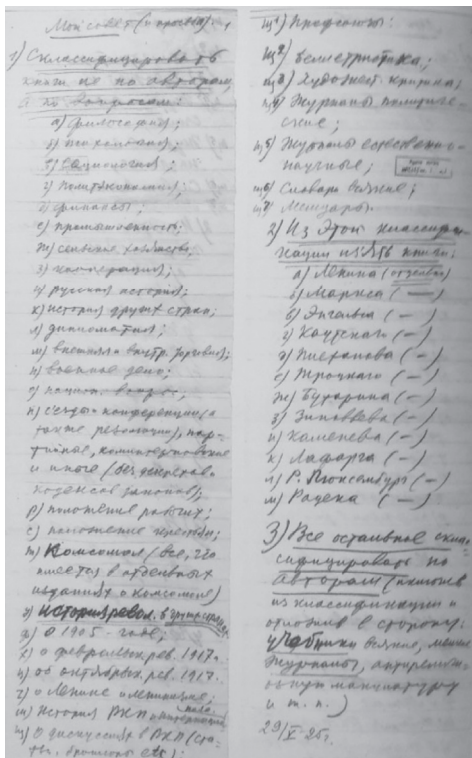 Мой совет (и просьба):
1) Склассифицировать
книги не по авторам,
а по вопросам:
а) философия;
б) психология;
в) социология;
г) политэкономия;
д) финансы;
е) промышленность;
ж) сельское хозяйство;
з) кооперация;
и) русская история;
к) история других стран;
л) дипломатия;
м) внешняя и внутр. торговля;
н) военное дело;
о) национ. вопрос;
п) съезды и конференции (а
также резолюции), пар-
тийные, коминтерновские
и иные (без декретов и
кодексов законов);
р) положение рабочих;
с) положение крестьян;
т) Комсомол (все, что
имеется в отдельных
изданиях о комсомоле)
у) история револ. в других странах;
ф) о 1905 годе;
х) о февральск. рев. 1917 г.
ц) об октябрьск. рев. 1917 г.
ч) о Ленине и ленинизме;
ш) История РКП и Интернационала
щ) О дискуссиях в РКП (ста-
тьи, брошюры etc);
щ1) Профсоюзы:
щ2) беллетристика;
щ3) художест. критика;
щ4) Журналы политиче-
ские;
щ5) Журналы естественно-
научные;
щ6) Словари всякие;
щ7) Мемуары.
2) Из этой классифи-
кации изъять книги:
а) Ленина (отдельно)
б) Маркса (—)
в) Энгельса (—)
г) Каутского (—)
д) Плеханова (—)
е) Троцкого (—)
ж) Бухарина (—)
з) Зиновьева (—)
и) Каменева (—)
к) Лафарга (—)
л) Р. Люксембург (—)
м) Радека (—)
3) Все остальное скла-
сифицировать по
авторам (исключив
из классификации и
отложив в сторону:
учебники всякие, мелкие
журналы, антирелигиоз-
ную макулатуру
и т. п.)
29/V-25 г.